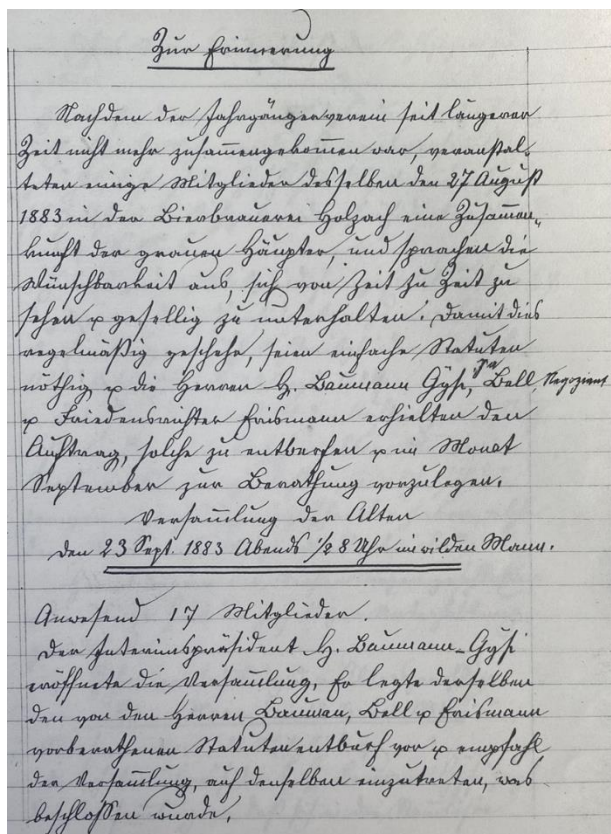 Zur Erinnerung
Nachdem der Jahrgängerverein seit längerer
Zeit nicht mehr zusammengekommen war, veranstal-
teten einige Mitglieder desselben den 27 August
1883 in der Bierbrauerei Holzach eine Zusammen-
kunft der grauen Häupter, und sprachen die
Wünschbarkeit aus, sich von Zeit zu Zeit zu
sehen & gesellig zu unterhalten. Damit dies
regelmäßig geschehe, seien einfache Statuten
nöthig & die Herren H. Baumann Gysi, Bell, Negoziant
& Friedensrichter Erismann erhielten den
Auftrag, solche zu entwerfen & im Monat
September zur Berathung vorzulegen.
Versam̅lung der Alten
den 23 Sept. 1883 Abends ½ 8 Uhr im wilden Mann.
Anwesend 17 Mitglieder.
Der Interimspräsident H. Baumann-Gysi
eröffnete die Versam̅lung. Er legte derselben
den von den Herren Bauman, Bell & Erismann
vorberathenen Statutenentwurf vor & empfahl
der Versam̅lung, auf denselben einzutreten, was
beschlossen wurde.